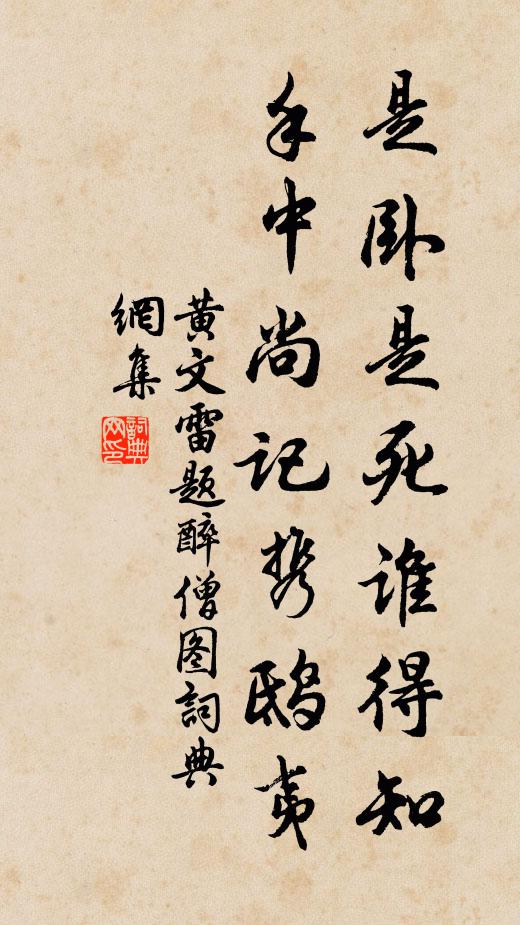 是卧是死谁得知
手中尚记携鸱夷
黄文雷题醉僧图詞典
網集
詞典
网印